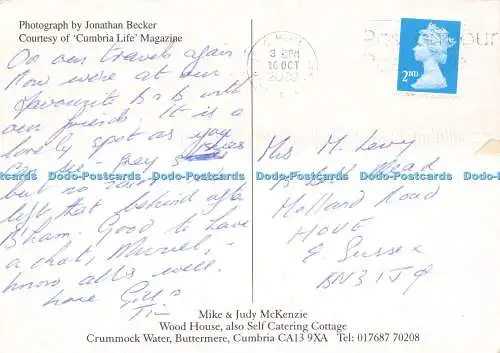 Photograph by Jonathan Becker
Courtesy of 'Cumbria Life' Magazine
On our travels again!
Now were at our
favourite B & B with
our friends. It is a
lovely spot as you
can see - grey skies
but no rain
left that behind after
B'ham. Good to have
a chat, Muriel,
know all's well.
Love
3 PM
10 OCT
2ND
Mrs M. Levy
Mead
Holland Road
HOVE
E. Sussex
BN3 1J
Dodo-Postcards Dodo-Postcards Dodo-Postcards Dodo-Postcards Dodo-Postcards Dodo-Postcards
Mike & Judy McKenzie
Wood House, also Self Catering Cottage
Crummock Water, Buttermere, Cumbria CA13 9XA Tel: 017687 70208